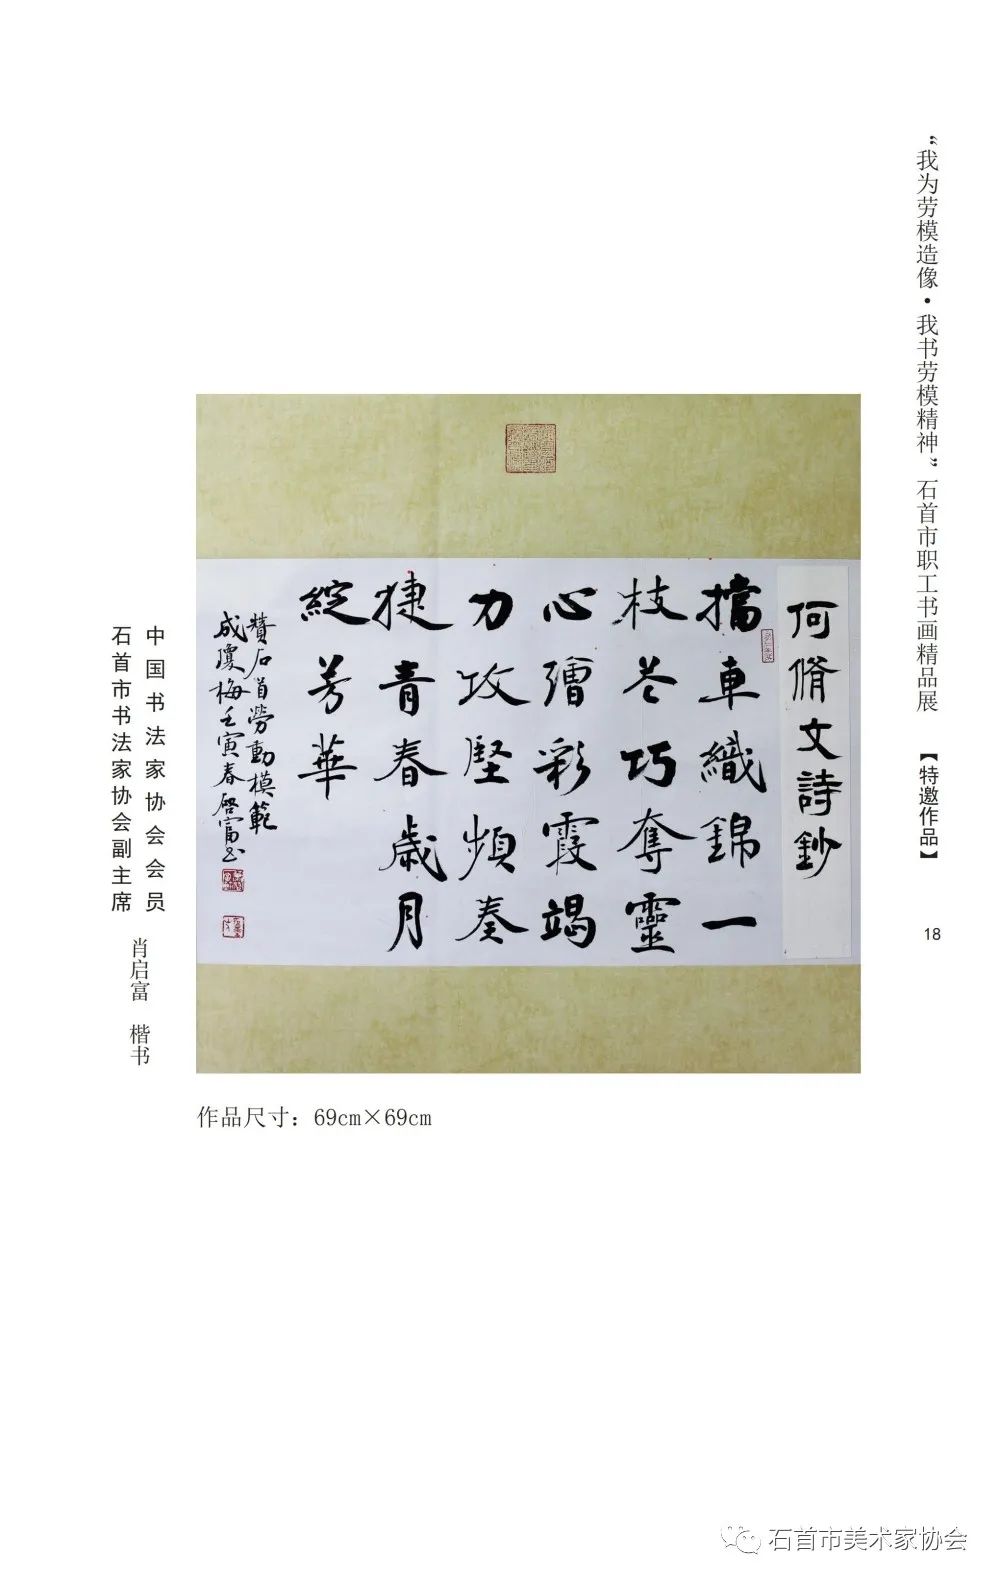 “我为劳模造像·我书劳模精神”石首市职工书画精品展 【特邀作品】
18
何脩文詩鈔
擋車織錦一
枝花巧奪靈
心繪彩霞竭
力攻堅頻奏
捷青春歲月
綻芳華
贊石首勞動模範
成瓊梅壬寅春啓富书
中国书法家协会会员
石首市书法家协会副主席
肖启富 楷书
作品尺寸：69cm×69cm
石首市美术家协会